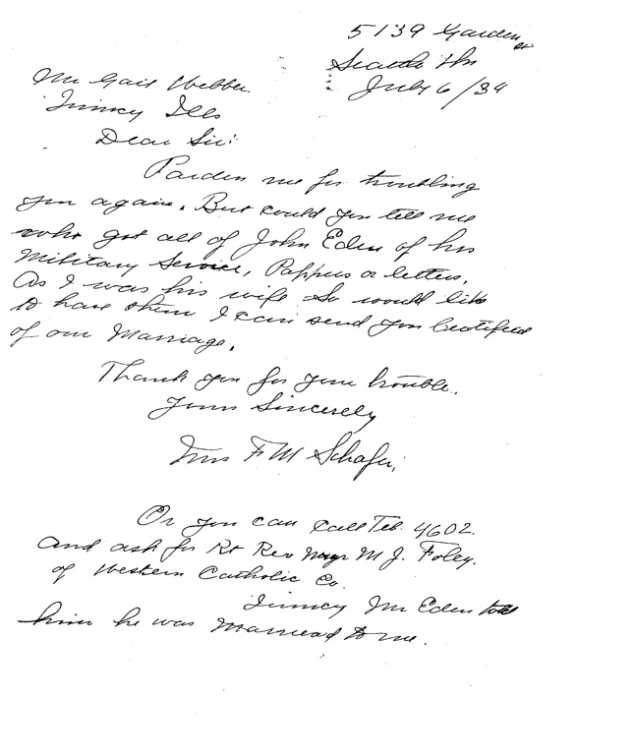 5139 Garden
July 6/34
Mr Gail Webber
Quincy Ills
Dear Sir:
Parden me for troubling
you again. But could you tell me
who got all of John Eden of his
Military Service, Pappers or letters.
As I was his wife So would like
to have them I can send you Certified
of our Marriage.
Thank you for your trouble.
Yours Sincerely
Mrs F M Schafer,
Or you can call Tel. 4602.
and ask for Rt Rev Msgr M J. Foley.
of Western Catholic Co.
Quincy Mr Eden told
him he was Marriead to me.